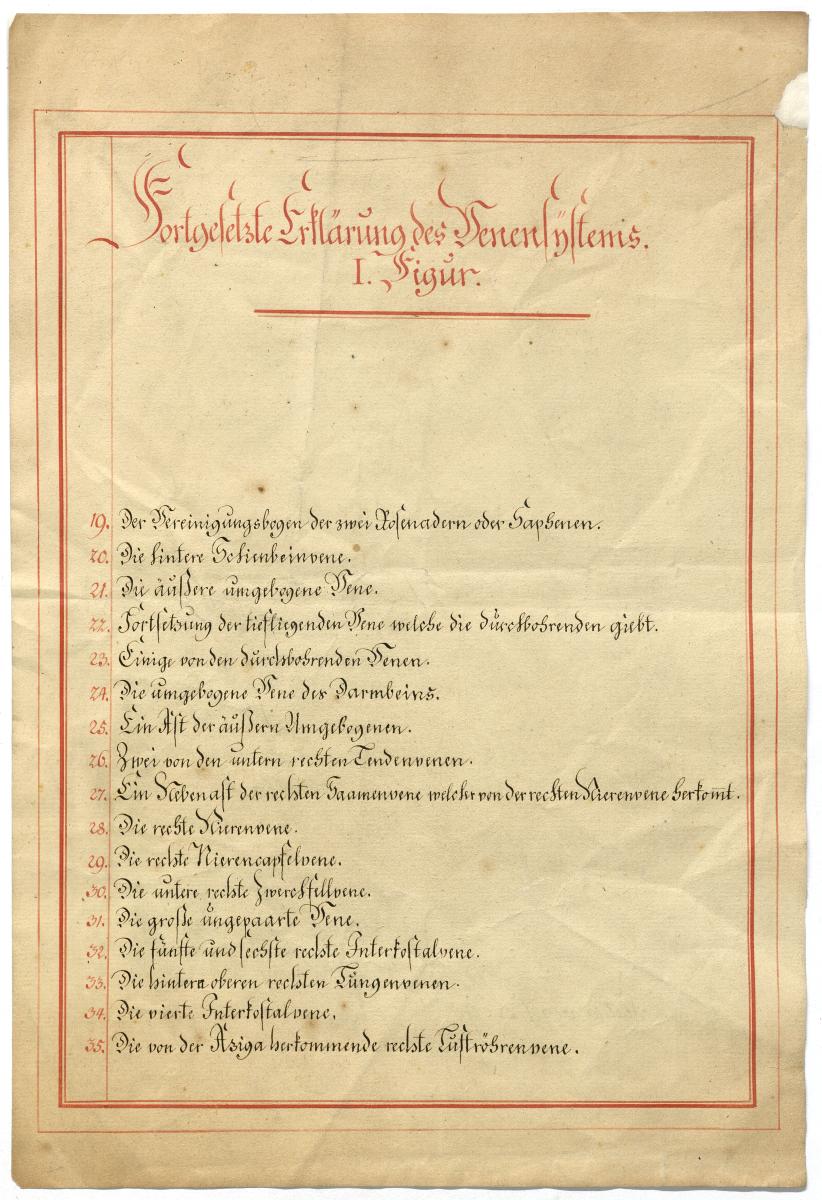 Fortgesetzte Erklärung des Venensÿstems.
I. Figur.
19. Der Vereinigungsbogen der zwei Rosenadern oder Saphenen.
20. Die hintere Schienbeinvene.
21. Die äußere umgebogene Vene.
22. Fortsetzung der tiefliegenden Vene welche die durchbohrenden giebt.
23. Einige von den durchbohrenden Venen.
24. Die umgebogene Vene des Darmbeins.
25. Ein Ast der äußern Umgebogenen.
26. Zwei von den untern rechten Lendenvenen.
27. Ein Nebenast der rechten Saamenvene welcher von der rechten Nierenvene herkom̅t.
28. Die rechte Nierenvene.
29. Die rechte Nierencapselvene.
30. Die untere rechte Zwerchfellvene.
31. Die große ungepaarte Vene.
32. Die fünfte und sechste rechte Interkostalvene.
33. Die hintern oberen rechten Lungenvenen.
34. Die vierte Interkostalvene.
35. Die von der Aziga herkommende rechte Luftröhrenvene.